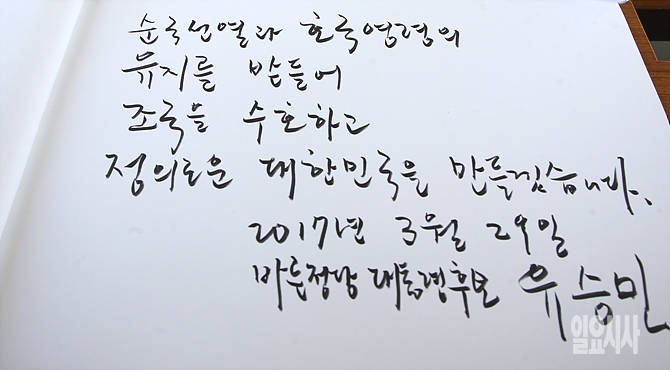 순국선열과 호국영령의
유지를 받들어
조국을 수호하고
정의로운 대한민국을 만들겠습니다.
2017년 3월 29일
바른정당 대통령후보 유승민
일요시사